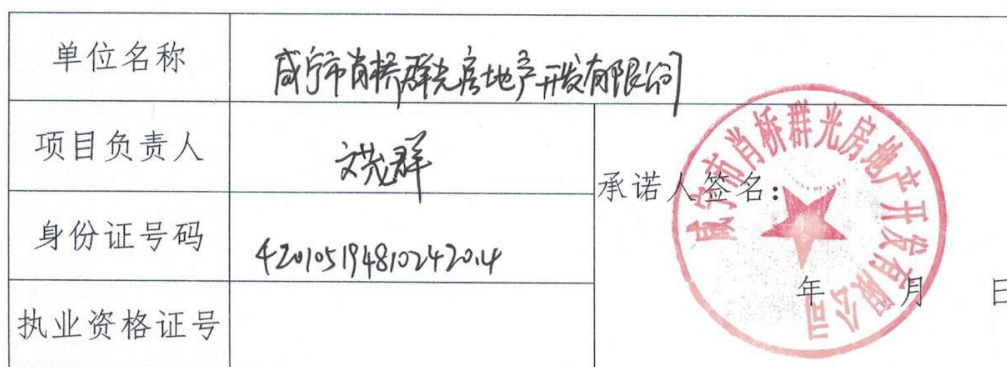 单位名称
咸宁市肖桥群光房地产开发有限公司
项目负责人
文茂群
承诺人签名：
身份证号码
420105194810242014
年 月 日
执业资格证号
咸宁市肖桥群光房地产开发有限公司